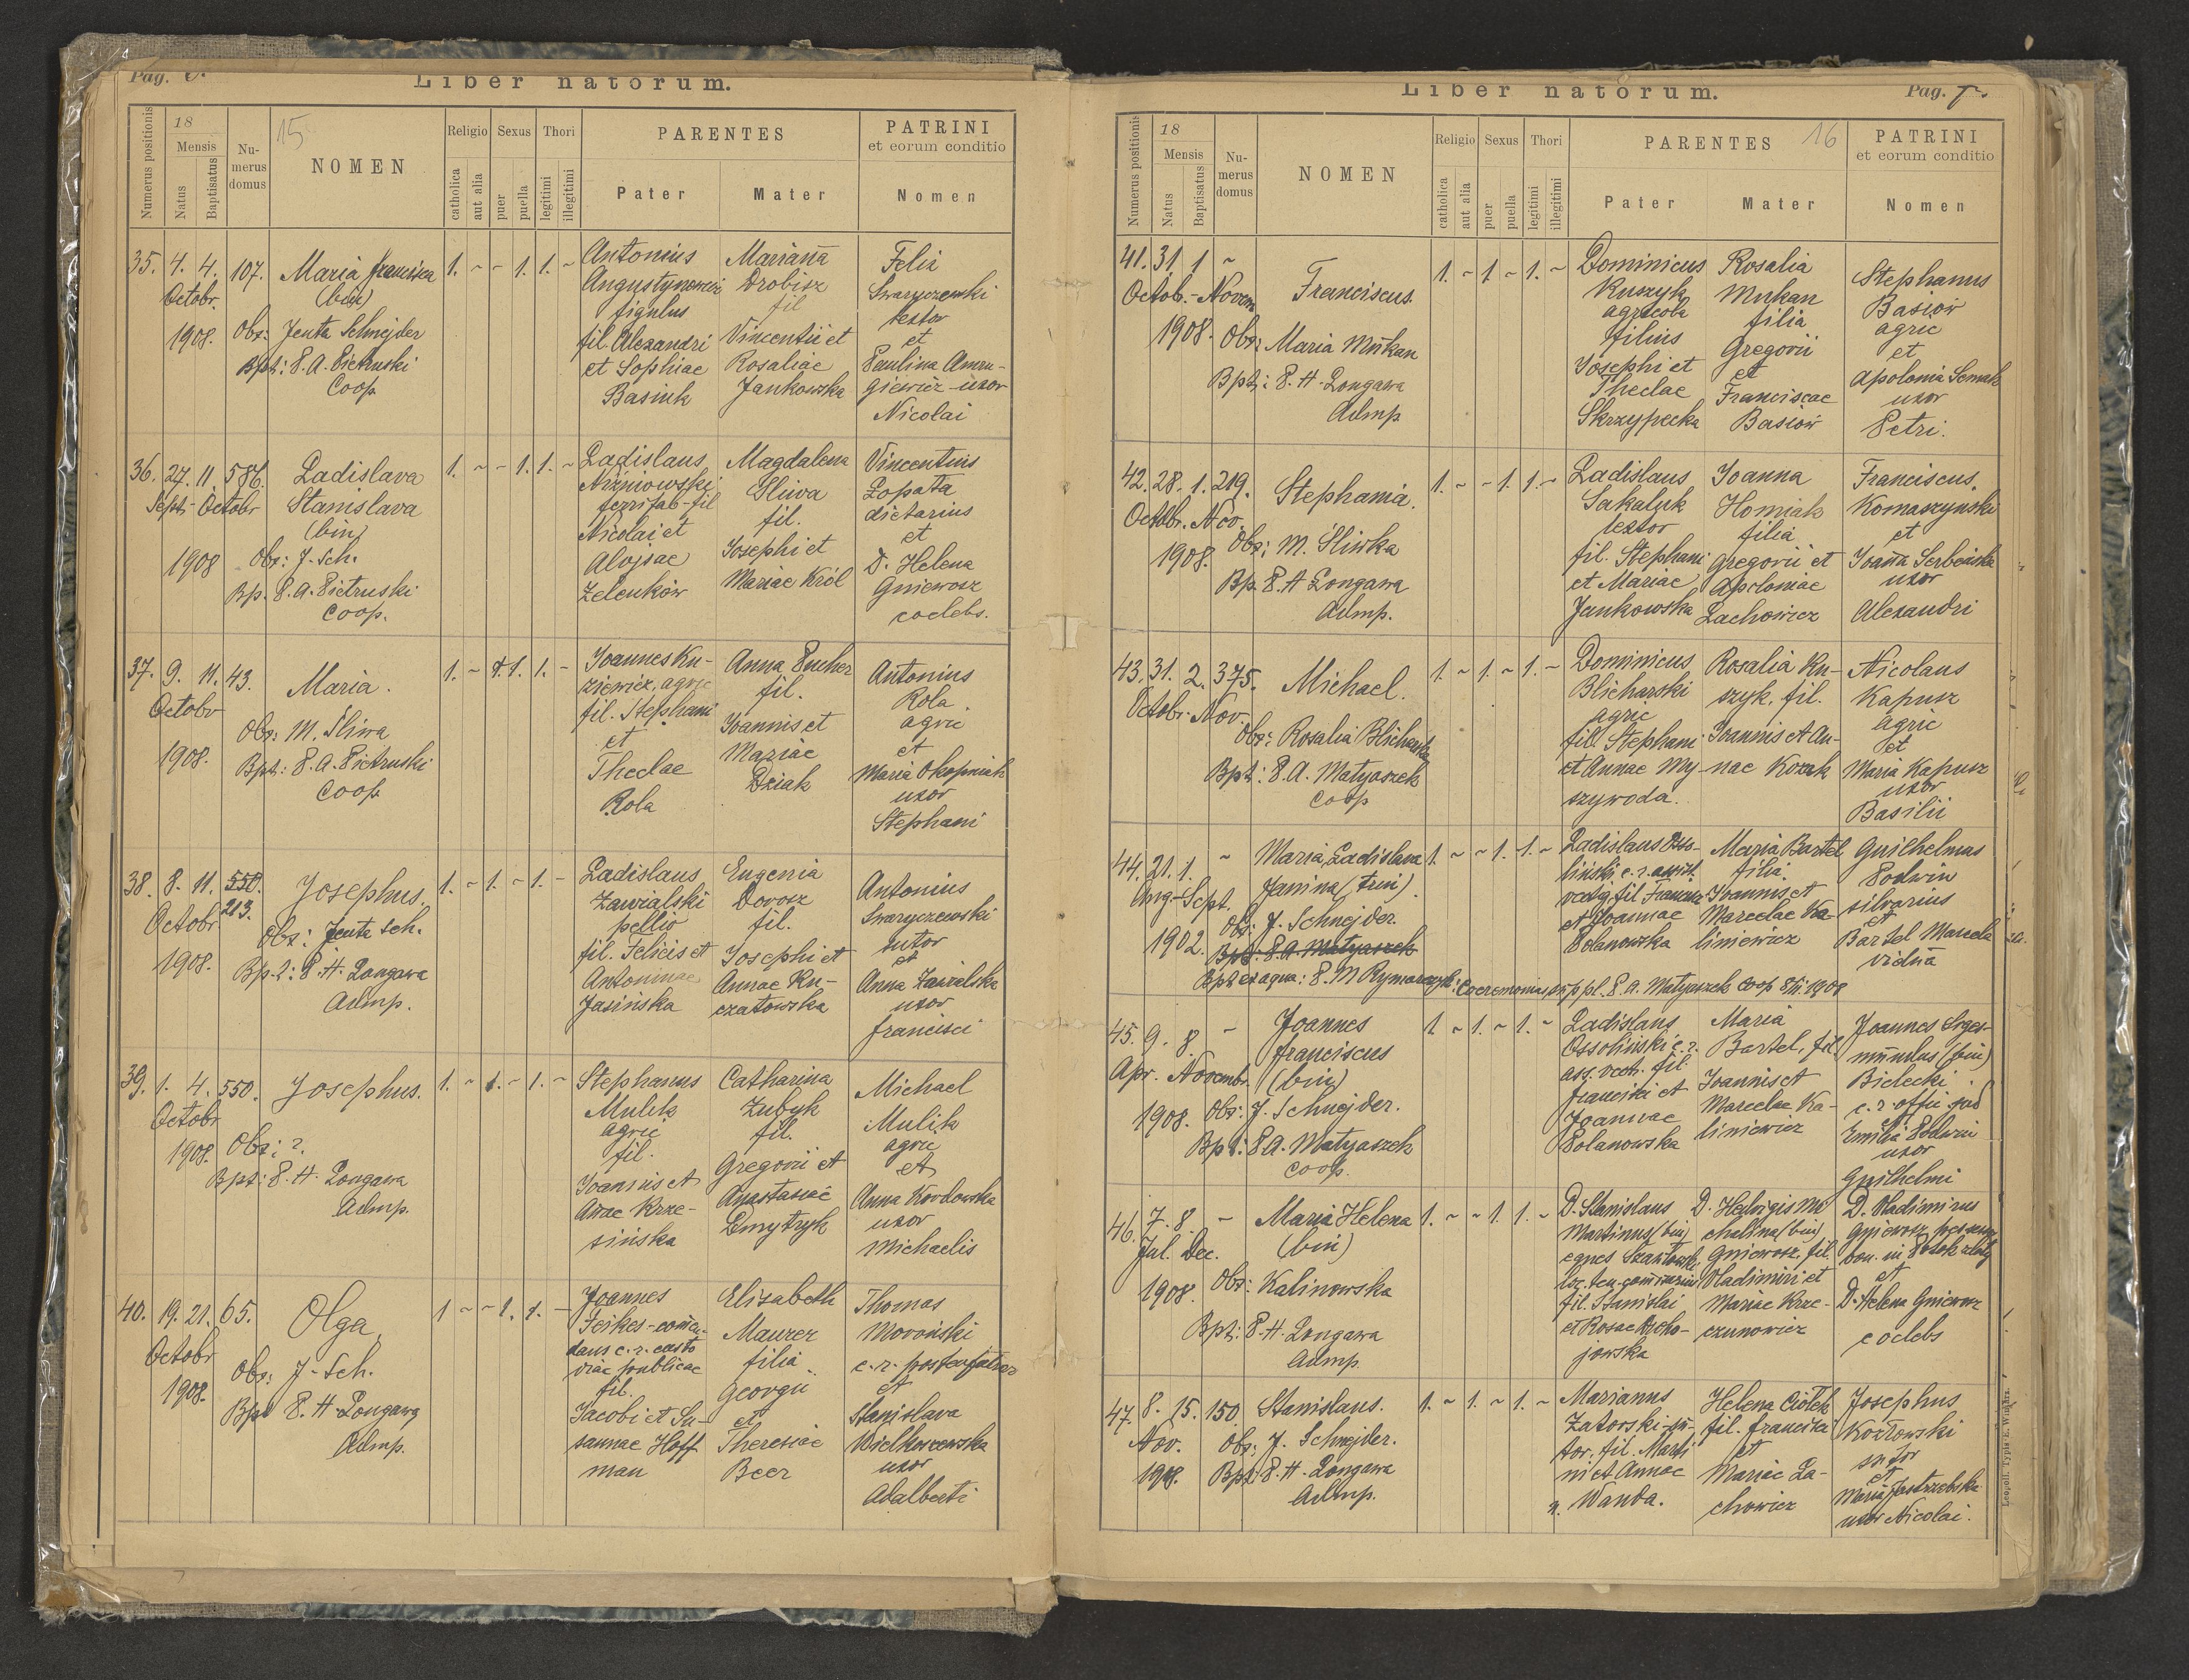 Pag.
Liber natorum.
15
Numerus positionis
18
Mensis
Natus
Baptisatus
Numerus domus
NOMEN
Religio
catholica
aut alia
Sexus
puer
puella
Thori
legitimi
illegitimi
PARENTES
Pater
Mater
PATRINI
et eorum conditio
Nomen
35. 4. 4. 107.
Octobr.
1908.
Maria Francisca
(bin)
Obs: Jenta Schnejder
Bpt: P. A. Pietruski
Coop
1. ~ - 1. 1. ~
Antonius
Augustynowicz
figulus
fil. Alexandri
et Sophiae
Basiuk
Marianna
Drobisz
fil
Vincentii et
Rosaliae
Jankowska
Felix
Swaryczewski
textor
et
Paulina
giewicz uxor
Nicolai
36. 27. 11. 586.
Sept - Octobr
1908
Ladislava
Stanislava
(bin)
Obs: J. Sch.
Bp. P. A. Pietruski
Coop.
1. ~ - 1. 1. ~
Ladislaus
Niżniowski
fil
Nicolai et
Alojsae
Zelenków
Magdalena
Śliwa
fil.
Josephi et
Mariae Król
Vincentius
Łopata
dietarius
et
D. Helena
Gniewosz
coelebs.
37. 9. 11. 43.
Octobr
1908.
Maria.
Obs: M. Śliwa
Bpt: P. A. Pietruski
Coop
1. ~ 1. 1. -
Joannes Ku-
ziewicz, agric
fil. Stephani
et
Theclae
Rola
Anna Pucher
fil.
Joannis et
Mariae
Dziak
Antonius
Rola
agric
et
Maria Okopniak
uxor
Stephani
38. 8. 11. 550.
213.
Octobr
1908.
Josephus.
Obs: Jenta Sch.
Bpt: P. H. Longawa
Admp.
1. ~ 1. ~ 1. -
Ladislaus
Zawialski
pellio
fil. Felicis et
Antoninae
Jasińska
Eugenia
Dorosz
fil.
Josephi et
Annae Ku-
czatowska
Antonius
Swaryczewski
sutor
et
Anna Zawialska
uxor
Francisci
39. 1. 4. 550.
Octobr
1908.
Josephus.
Obs: ?
Bpt: P. H. Longawa
Admp.
1. ~ 1. ~ 1. ~
Stephanus
Mulik
agric
fil.
Joannis et
Anae Krze-
sińska
Catharina
Zubyk
fil.
Gregorii et
Anastasiae
Dmytryk
Michael
Mulik
agric
et
Anna Kordowska
uxor
Michaelis
40. 19. 21. 65.
Octobr
1908.
Olga
Obs: J. Sch.
Bpt P. H. Longawa
Admp.
1 ~ ~ 1. 1. -
Joannes
Feikes - comen-
dans c. r. custo
diae publicae
fil.
Jacobi et Su-
sannae Hoff
man
Elisabeth
Maurer
filia
Georgii
et
Theresiae
Beer
Thomas
Moroński
c. r.
et
Stanislava
Wielkoszewska
uxor
Adalberti
Liber natorum.
Pag. 7.
16
Numerus positionis
18
Mensis
Natus
Baptisatus
Numerus domus
NOMEN
Religio
catholica
aut alia
Sexus
puer
puella
Thori
legitimi
illegitimi
PARENTES
Pater
Mater
PATRINI
et eorum conditio
Nomen
41. 31. 1 ~
Octob. - Novem
1908.
Franciscus.
Obs: Maria Mukan
Bpt: P. H. Longawa
Admp.
1. ~ 1 ~ 1. ~
Dominicus
Kuszyk
agricola
filius
Josephi et
Theclae
Skrzypecka
Rosalia
Mukan
filia
Gregorii
et
Franciscae
Basiów
Stephanus
Basiów
agric
et
Apolonia Semak
uxor
Petri.
42. 28. 1. 219.
Octobr. Nov.
1908.
Stephania.
Obs: M. Śliwka
Bp. P. H Longawa
Admp.
1. ~ - 1. 1. ~
Ladislaus
Sakaluk
textor
fil. Stephani
et Mariae
Jankowska
Joanna
Homiak
filia
Gregorii et
Apoloniae
Lachowicz
Franciscus
Komaszynski
et
Joanna Serbeńska
uxor
Alexandri
43. 31. 2. 375.
Octobr. Nov.
Michael.
Obs: Rosalia Blicharska
Bpt: P. A. Matyaszek
Coop
1. ~ 1. ~ 1. ~
Dominicus
Blicharski
agric
fil. Stephani
et Annae My-
szywoda.
Rosalia Ku-
szyk, fil.
Joannis et An-
nae Kozak
Nicolaus
Kapusz
agric
et
Maria Kapusz
uxor
Basilii
44. 21. 1. ~
Aug - Sept.
1902.
Maria Ladislava
Janina (trin).
Obs: J. Schnejder.
Bpt: P. A. Matyaszek
Bpt ex aqua: P. M Rymarczyk: Caeremonias suppl. P. A. Matyaszek Coop 8/11. 1908
1. ~ ~ 1. 1. ~
Ladislaus Osso-
liński c. r. assist.
vectig. fil Francisci
et Joannae
Polanowska
Maria Bartel
filia
Joannis et
Marcelae Ka-
liniewicz
Guilhelmus
Podwin
silvarius
et
Bartel Marcela
vidua
45. 9. 8 -
Apr. Novembr.
1908.
Joannes
Franciscus
(bin)
Obs: J. Schnejder.
Bpt: P. A. Matyaszek
Coop.
1. ~ 1. ~ 1. ~
Ladislaus
Ossoliński c. r.
ass. vect. fil.
Francisci et
Joannae
Polanowska
Maria
Bartel, fil
Joannis et
Marcelae Ka-
liniewicz
Joannes Siges-
mundus (bin)
Bielecki
c. r. offic. jud
et
Emilia Podwin
uxor
Guilhelmi
46. 7. 8. -
Jul. Dec.
1908.
Maria Helena
(bin)
Obs: Kalinowska
Bpt: P. H. Longawa
Admp
1. ~ ~ 1. 1. ~
D. Stanislaus
Martinus (bin)
eques
fil. Stanislai
et Rosae Droho-
jowska
D. Hedvigis Mi
chalina (bin)
Gniewosz, fil.
Vladimiri et
Mariae Krze-
czunowicz
D. Vladimirus
Gniewosz
bon. in Potok złoty
et
D. Helena Gniewosz
coelebs
47. 8. 15. 150
Nov.
1908.
Stanislaus.
Obs: J. Schnejder.
Bpt: P. H. Longawa
Admp.
1. ~ 1. ~ 1. ~
Marianus
Zatorski - su-
tor. fil. Marti
ni et Annae
n. Wanda.
Helena Ciołek
fil. Francisci
et
Mariae La-
chowicz
Josephus
Kozłowski
sutor
et
Maria Jastrzębska
uxor Nicolai.
Leopoli. Typis E. Winiarz.